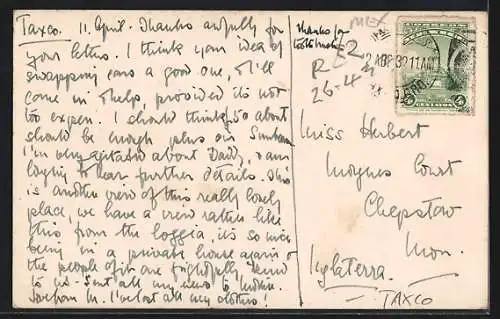 Taxco. 11. April. Thanks awfully for
your letter. I think your idea of
swapping cars a good one, & I'll
come in & help, provided it's not
too expen. I should think £50 about
should be enough plus our Sunbeam
I'm very agitated about Daddy, & am
longing to hear further details. This
is another view of this really lovely
place, we have a view rather like
this from the loggia, it's so nice
being in a private house again &
the people of it are frightfully kind
to us. Sent all my news to Mother.
Love from M. I've lost all my clothes!
Thanks for
toothbrush
R E 2
26-4-
2 ABR 32 11 AM
Miss Herbert
Moynes Court
Chepstow
Mon.
Inglaterra.
— TAXCO